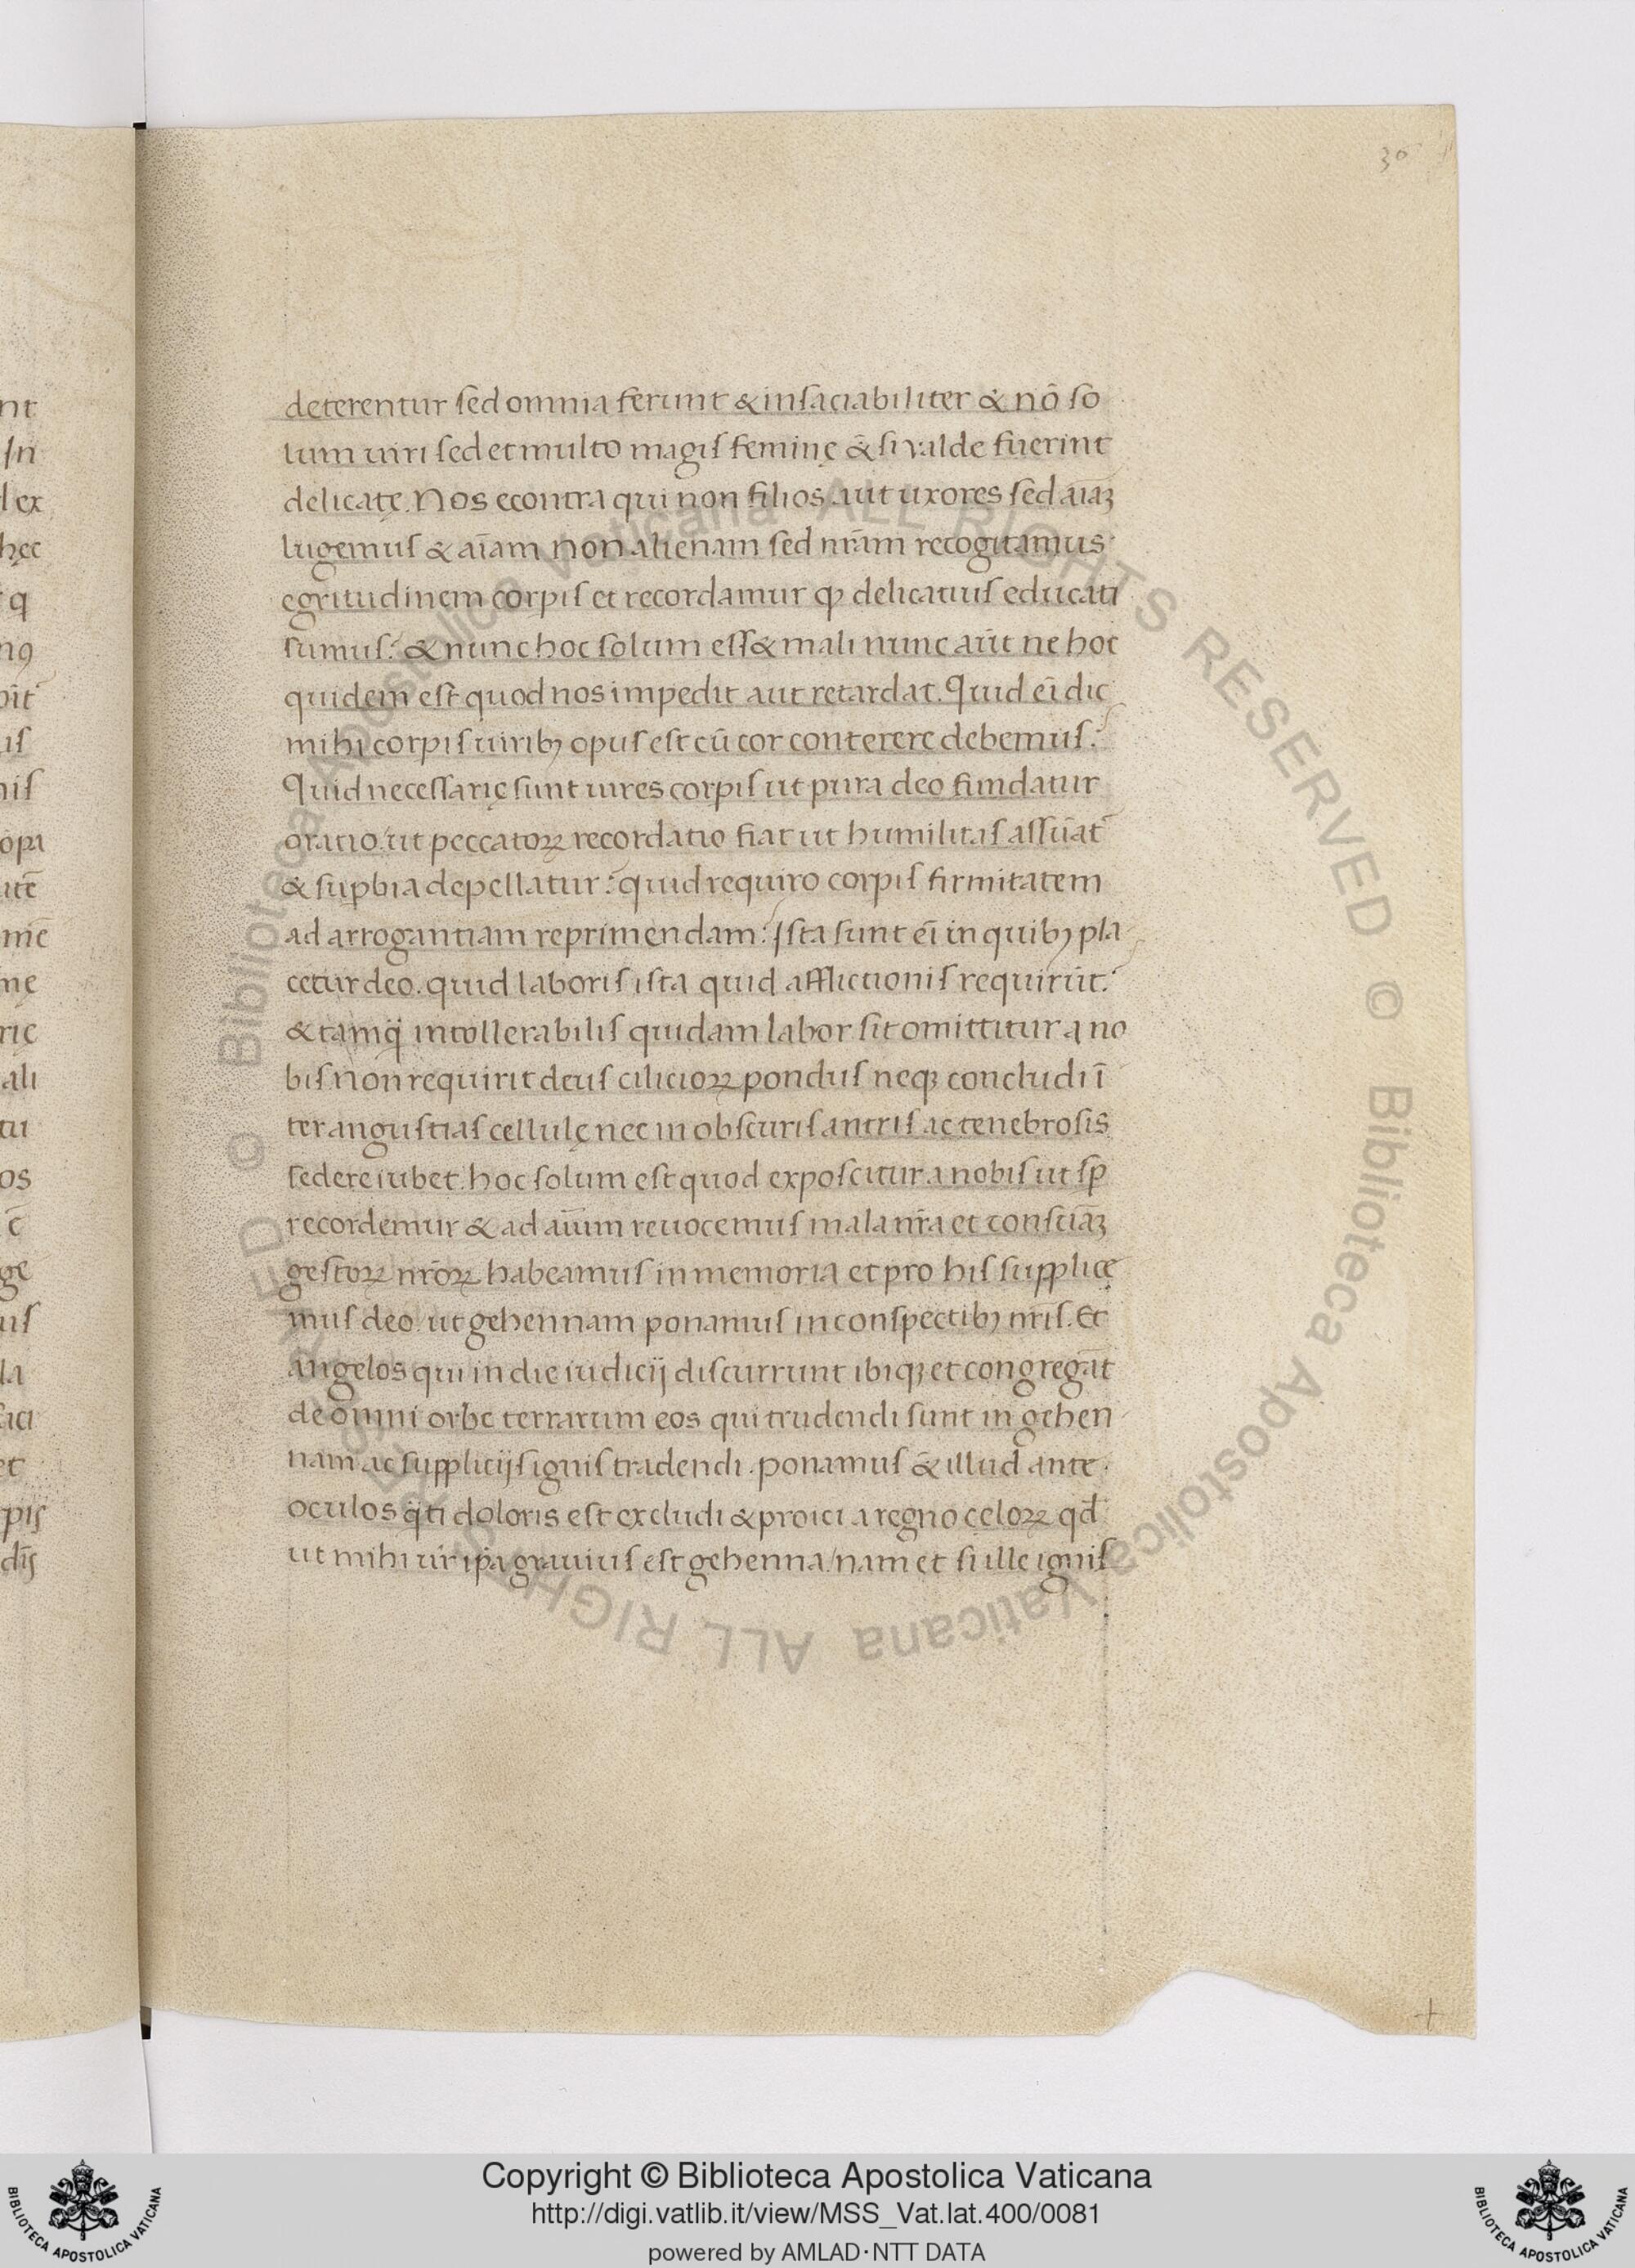 30
deterentur sed omnia ferunt & insaciabiliter & nō so
lum uiri sed et multo magis feminę & si valde fuerint
delicatę. Nos econtra qui non filios aut uxores sed aīaꝫ
lugemus & aīam non alienam sed nr̄am recogitamus
egritudinem corpis et recordamur ꝙ delicatius educati
sumus? & nunc hoc solum ess& mali nunc aūt ne hoc
quidem est quod nos impedit aut retardat. Quid eī dic
mihi corpis uiribꝫ opus est cū cor conterere debemus?
Quid necessarię sunt uires corpis ut pura deo fundatur
oratio. ut peccatoꝝ recordatio fiat ut humilitas assūat̄
& supbia depellatur? quid requiro corpis firmitatem
ad arrogantiam reprimendam? Ista sunt eī in quibꝫ pla
cetur deo. quid laboris ista quid afflictionis requirūt?
& tamq̄ intollerabilis quidam labor sit omittitur a no
bis non requirit deus cilicioꝝ pondus neqꝫ concludi ī
ter angustias cellulę nec in obscuris antris ac tenebrosis
sedere iubet. hoc solum est quod exposcitur a nobis ut sp̄
recordemur & ad aīum reuocemus mala nr̄a et consciāꝫ
gestoꝝ nr̄oꝝ habeamus in memoria et pro his supplicę
mus deo. ut gehennam ponamus in conspectibꝫ nr̄is. Et
angelos qui in die iudicij discurrunt ibiqꝫ et congregāt
de omni orbe terrarum eos qui trudendi sunt in gehen
nam ac supplicijs ignis tradendi. ponamus & illud ante
oculos q̄ti doloris est excludi & proici a regno cęloꝝ qđ
ut mihi ur̄ ip̄a grauius est gehenna/nam et si ille ignis
nt
In
hęc
us
nis
ali
os
ge
us
la
et
Copyright © Biblioteca Apostolica Vaticana
http://digi.vatlib.it/view/MSS_Vat.lat.400/0081
powered by AMLAD·NTT DATA
BIBLIOTECA APOSTOLICA VATICANA
BIBLIOTECA APOSTOLICA VATICANA
© Biblioteca Apostolica Vaticana ALL RIGHTS RESERVED
© Biblioteca Apostolica Vaticana ALL RIGHTS RESERVED